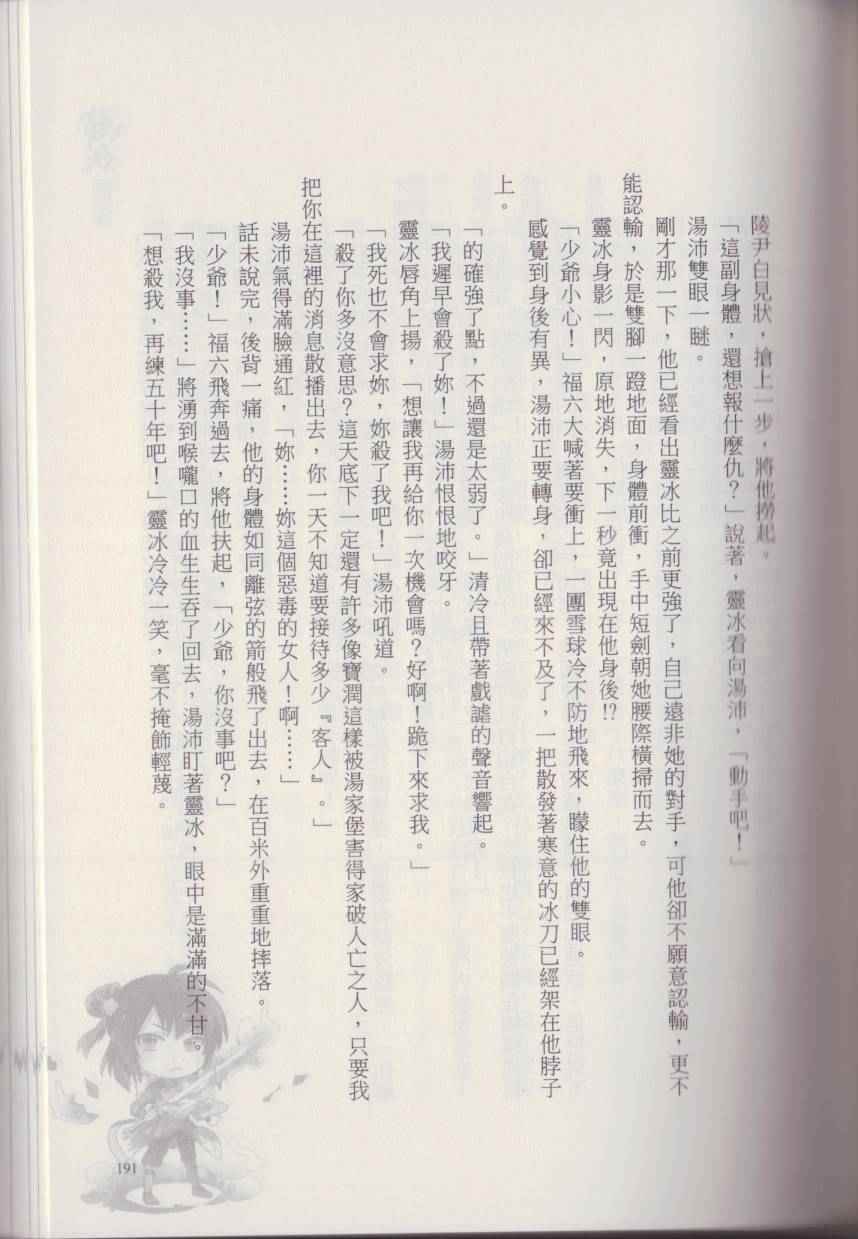 陵尹白見狀，搶上一步，將他撈起。
「這副身體，還想報什麼仇？」說著，靈冰看向湯沛，「動手吧！」
湯沛雙眼一瞇。
剛才那一下，他已經看出靈冰比之前更強了，自己遠非她的對手，可他卻不願意認輸，更不
能認輸，於是雙腳一蹬地面，身體前衝，手中短劍朝她腰際橫掃而去。
靈冰身影一閃，原地消失，下一秒竟出現在他身後！？
「少爺小心！」福六大喊著要衝上，一團雪球冷不防地飛來，矇住他的雙眼。
感覺到身後有異，湯沛正要轉身，卻已經來不及了，一把散發著寒意的冰刀已經架在他脖子
上。
「的確強了點，不過還是太弱了。」清冷且帶著戲謔的聲音響起。
「我遲早會殺了妳！」湯沛恨恨地咬牙。
靈冰唇角上揚，「想讓我再給你一次機會嗎？好啊！跪下來求我。」
「我死也不會求妳，妳殺了我吧！」湯沛吼道。
「殺了你多沒意思？這天底下一定還有許多像寶潤這樣被湯家堡害得家破人亡之人，只要我
把你在這裡的消息散播出去，你一天不知道要接待多少『客人』。」
湯沛氣得滿臉通紅，「妳……妳這個惡毒的女人！啊……」
話未說完，後背一痛，他的身體如同離弦的箭般飛了出去，在百米外重重地摔落。
「少爺！」福六飛奔過去，將他扶起，「少爺，你沒事吧？」
「我沒事……」將湧到喉嚨口的血生生吞了回去，湯沛盯著靈冰，眼中是滿滿的不甘。
「想殺我，再練五十年吧！」靈冰冷冷一笑，毫不掩飾輕蔑。
191